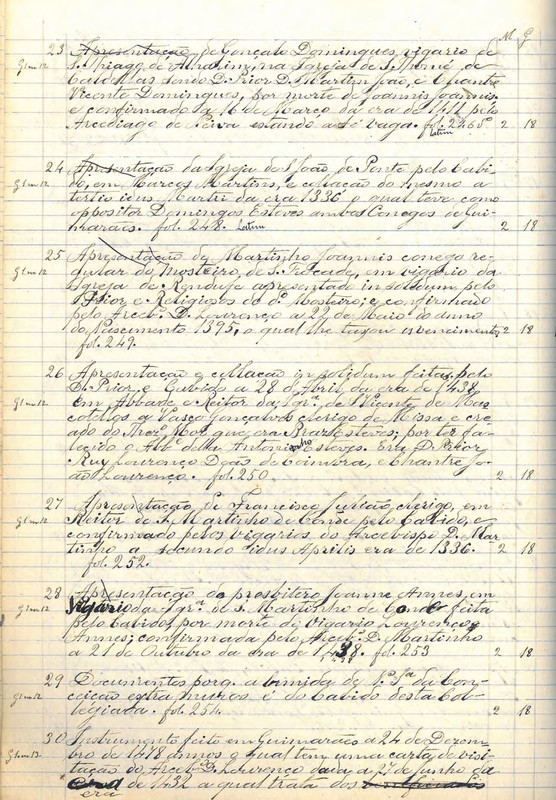 M G
23 Apresentação de Gonçalo Domingues, vigario de
S. Thiago de na Igreja de S. Thomé de
Caldellas sendo D. Prior D. Martim e Chantre
Vicente Domingues, por morte de Joannis Joannis
e confirmado a 16 de Março da era de 1411 pelo
Arcediago de Neiva estando a Sé vaga. fol. 246 vº 2 18
Latim
24 Apresentação da Igreja de S. João de Ponte pelo Cabi-
do, em Marcos Martins, e collação do mesmo a
tertio idus Martii da era 1336 o qual teve como
oppositor Domingos Esteves ambos Conegos de Gui-
marães. fol. 248. Latim 2 18
25 Apresentação de Martinho Joannis conego re-
gular do Mosteiro de S. Torcade, em vigario da
Igreja de Rendufe apresentado in solidum pelo
Prior e Religiosos do dº Mosteiro; e confirmado
pelo Arcebº D. Lourenço a 22 de Maio do anno
do Nascimento 1395, o qual lhe taxou os vencimentos 2 18
fol. 249.
26 Apresentação e collação in solidum feitas pelo
D. Prior, e Cabido a 28 de Abril da era de 1438,
em Abbade e Reitor da Igrª de S. Vicente de Mas-
cotellos a Vasco Gonçalves clerigo de Missa e cre-
ado do Thezº Mór que era Braz Esteves; por ter fa-
lecido o Abbº della Antonio Esteves. Era D. Prior
Ruy Lourenço Deão de Coimbra, e Chantre Jo-
ão Lourenço. fol. 250 2 18
27 Apresentação de Francisco Julião, clerigo, em
Reitor de S. Martinho de Conde pelo Cabido, e
confirmado pelos vigarios do Arcebispo D. Mar-
tinho a secundo idus Aprilis era de 1336. 2 18
fol. 252.
28 Apresentação do presbitero Joanne Annes, em
vigario da Igrª de S. Martinho de Conde feita
pelo Cabido, por morte de vigario Lourenço
Annes; confirmada pelo Arcebº D. Martinho
a 21 de Outubro da era de 1438. fol. 253 2 18
29 Documentos porq. a ermida de N.ª Sª da Con-
ceição extra muros é do Cabido desta Col-
legiada. fol. 254. 2 18
30 Instrumento feito em Guimarães a 24 de Dezem-
bro de 1418 annos o qual tem uma carta de visi-
tação do Arcebº D. Lourenço dada a 27 de Junho da
era de 1432 a qual trata dos
era